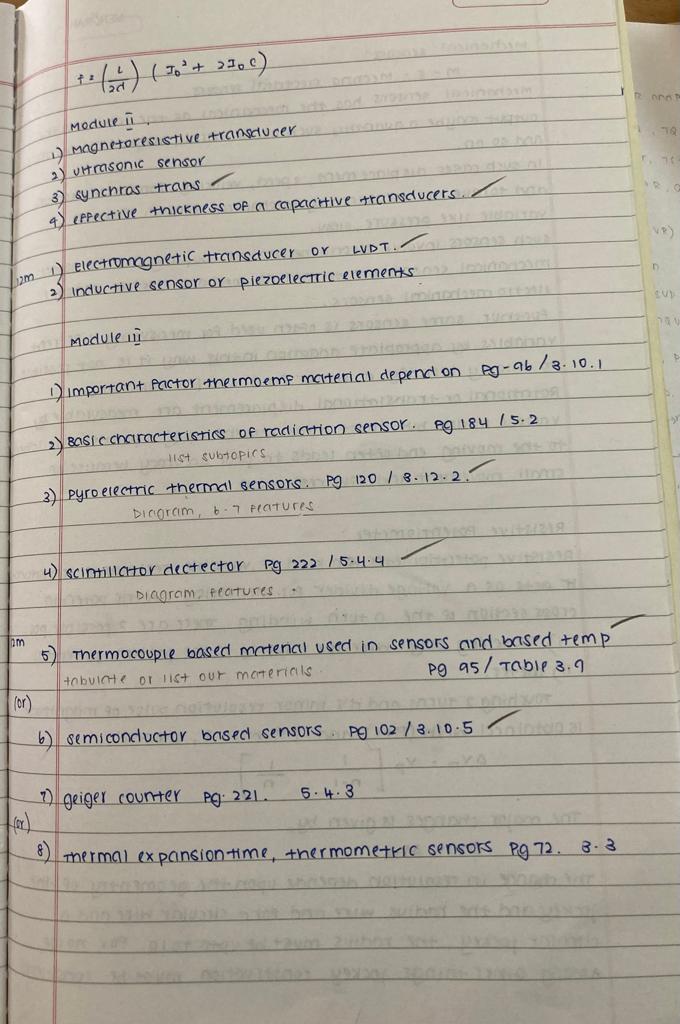 f = (L/2d) (I₀² + 2I₀C)
Module II.
1) Magnetoresistive transducer
2) Ultrasonic sensor
3) synchros trans
4) effective thickness of a capacitive transducers.
12m 1) Electromagnetic transducer or LVDT.
2) Inductive sensor or piezoelectric elements
Module III
1) Important factor thermoemf material depend on pg-96 / 3.10.1
2) Basic characteristics of radiation sensor. pg 184 / 5.2
list subtopics
3) pyroelectric thermal sensors. pg 120 / 3.12.2.
Diagram, 6-7 features
4) scintillator dectector pg 222 / 5.4.4
Diagram, features.
12m 5) Thermocouple based material used in sensors and based temp
tabulate or list our materials. pg 95 / Table 3.9
(or)
6) semiconductor based sensors. pg 102 / 3.10.5
7) geiger counter pg. 221. 5.4.3
(or)
8) thermal expansion time, thermometric sensors pg 72. 3.3